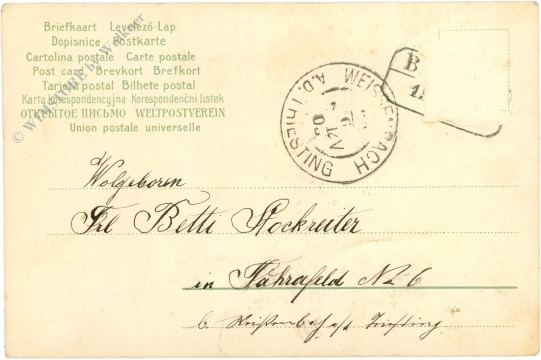 Briefkaart Levelező-Lap
Dopisnice Postkarte
Cartolina postale Carte postale
Post card Brevkort Brefkort
Tarjeta postal Bilhete postal
Karta korespondencyjna Korespondenční listek
ОТКРЫТОЕ ПИСЬМО WELTPOSTVEREIN
Union postale universelle
WEISSENBACH
A.D. TRIESTING
Wolgeboren
Frl Betti Stockreiter
in Fahrafeld No 6
b. Weißenbach a/d Triesting